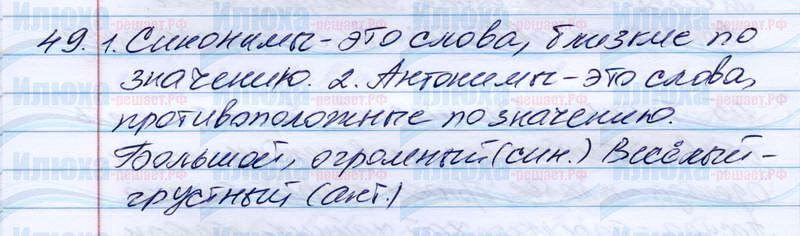 49. 1. Синонимы - это слова, близкие по
значению. 2. Антонимы - это слова,
противоположные по значению.
Большой, огромный (син.) Весёлый -
грустный (ант.)